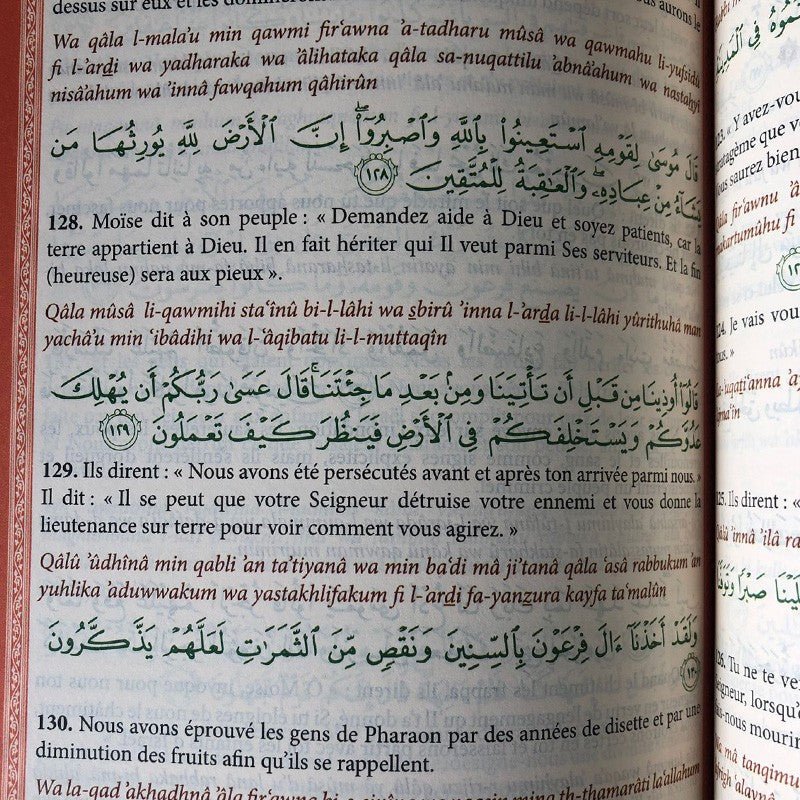 dessus sur eux et les dominerons
aurons le
Wa qâla l-mala'u min qawmi fir'awna 'a-tadharu mûsâ wa qawmahu li-yufsidû
fi l-'arḏi wa yadharaka wa 'âlihataka qâla sa-nuqattilu 'abnâ'ahum wa nastaḥyî
nisâ'ahum wa 'innâ fawqahum qâhirûn
قَالَ مُوسَىٰ لِقَوْمِهِ ٱسْتَعِينُوا۟ بِٱللَّهِ وَٱصْبِرُوٓا۟ ۖ إِنَّ ٱلْأَرْضَ لِلَّهِ يُورِثُهَا مَن
يَشَآءُ مِنْ عِبَادِهِۦ ۖ وَٱلْعَـٰقِبَةُ لِلْمُتَّقِينَ ١٢٨
128. Moïse dit à son peuple : « Demandez aide à Dieu et soyez patients, car la
terre appartient à Dieu. Il en fait hériter qui Il veut parmi Ses serviteurs. Et la fin
(heureuse) sera aux pieux ».
Qâla mûsâ li-qawmihi sta'înû bi-l-lâhi wa sbirû 'inna l-'arda li-l-lâhi yûrithuhâ man
yachâ'u min 'ibâdihi wa l-'âqibatu li-l-muttaqîn
قَالُوٓا۟ أُوذِينَا مِن قَبْلِ أَن تَأْتِيَنَا وَمِنۢ بَعْدِ مَا جِئْتَنَا ۚ قَالَ عَسَىٰ رَبُّكُمْ أَن يُهْلِكَ
عَدُوَّكُمْ وَيَسْتَخْلِفَكُمْ فِى ٱلْأَرْضِ فَيَنظُرَ كَيْفَ تَعْمَلُونَ ١٢٩
129. Ils dirent : « Nous avons été persécutés avant et après ton arrivée parmi nous. »
Il dit : « Il se peut que votre Seigneur détruise votre ennemi et vous donne la
lieutenance sur terre pour voir comment vous agirez. »
Qâlû 'ûdhînâ min qabli 'an ta'tiyanâ wa min ba'di mâ ji'tanâ qâla 'asâ rabbukum 'an
yuhlika 'aduwwakum wa yastakhlifakum fi l-'arḏi fa-yanẕura kayfa ta'malûn
وَلَقَدْ أَخَذْنَآ ءَالَ فِرْعَوْنَ بِٱلسِّنِينَ وَنَقْصٍ مِّنَ ٱلثَّمَرَٰتِ لَعَلَّهُمْ يَذَّكَّرُونَ
١٣٠
130. Nous avons éprouvé les gens de Pharaon par des années de disette et par une
diminution des fruits afin qu'ils se rappellent.
Wa la-qad 'akhadhnâ 'âla fir'awna bi-s-sinîna wa naqsin mina th-thamarâti la'allahum
فِى ٱلْمَدِينَةِ
« Y avez-vous
stratagème que v
Vous saurez bien
Qâla fir'awnu
makartumûhu fi
124. Je vais vou
»
125. Ils dirent : «
Qâlû 'innâ 'ilâ ra
صَبْرًا وَتَوَفَّ
126. Tu ne te ve
Seigneur, lorsqu'
mâ tanqimu